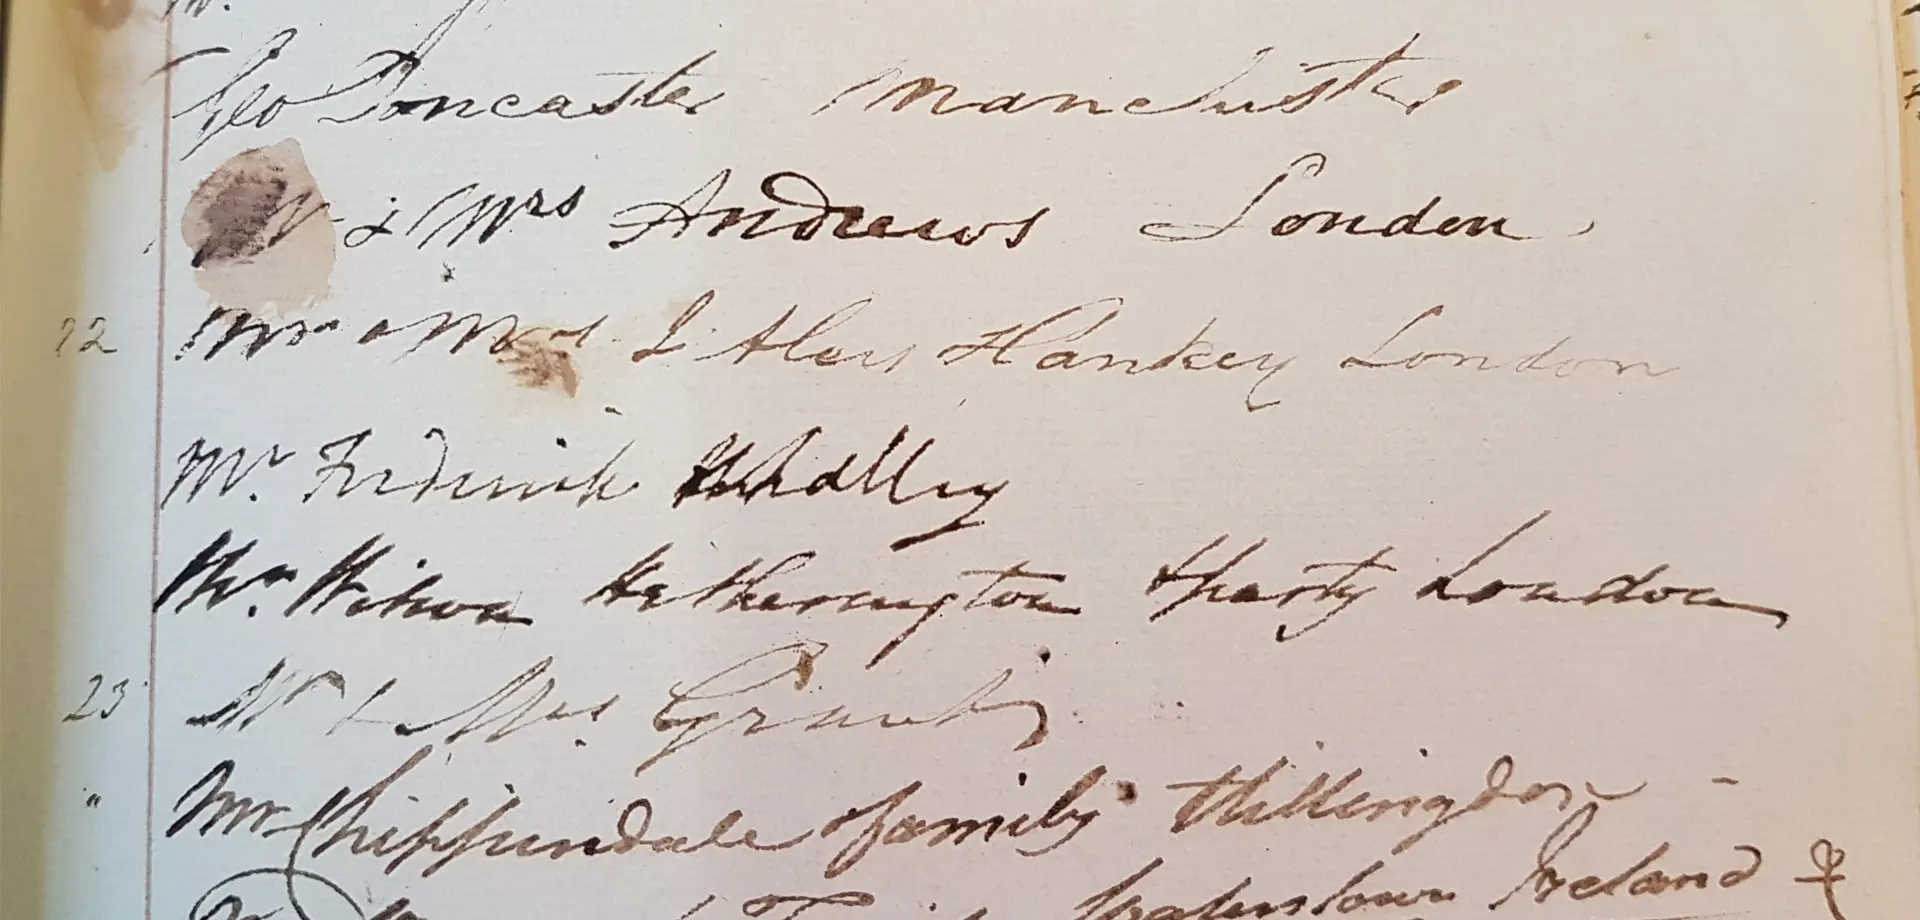 Geo Doncaster Manchester
& Mrs Andrews London
22 Mr & Mrs J. Alers Hankey London
Mr. Frederick Whalley
Mr. Wilson Hetherington & party London
23 Mr & Mrs
" Mr Chippindale & family Hillingdon
Ireland